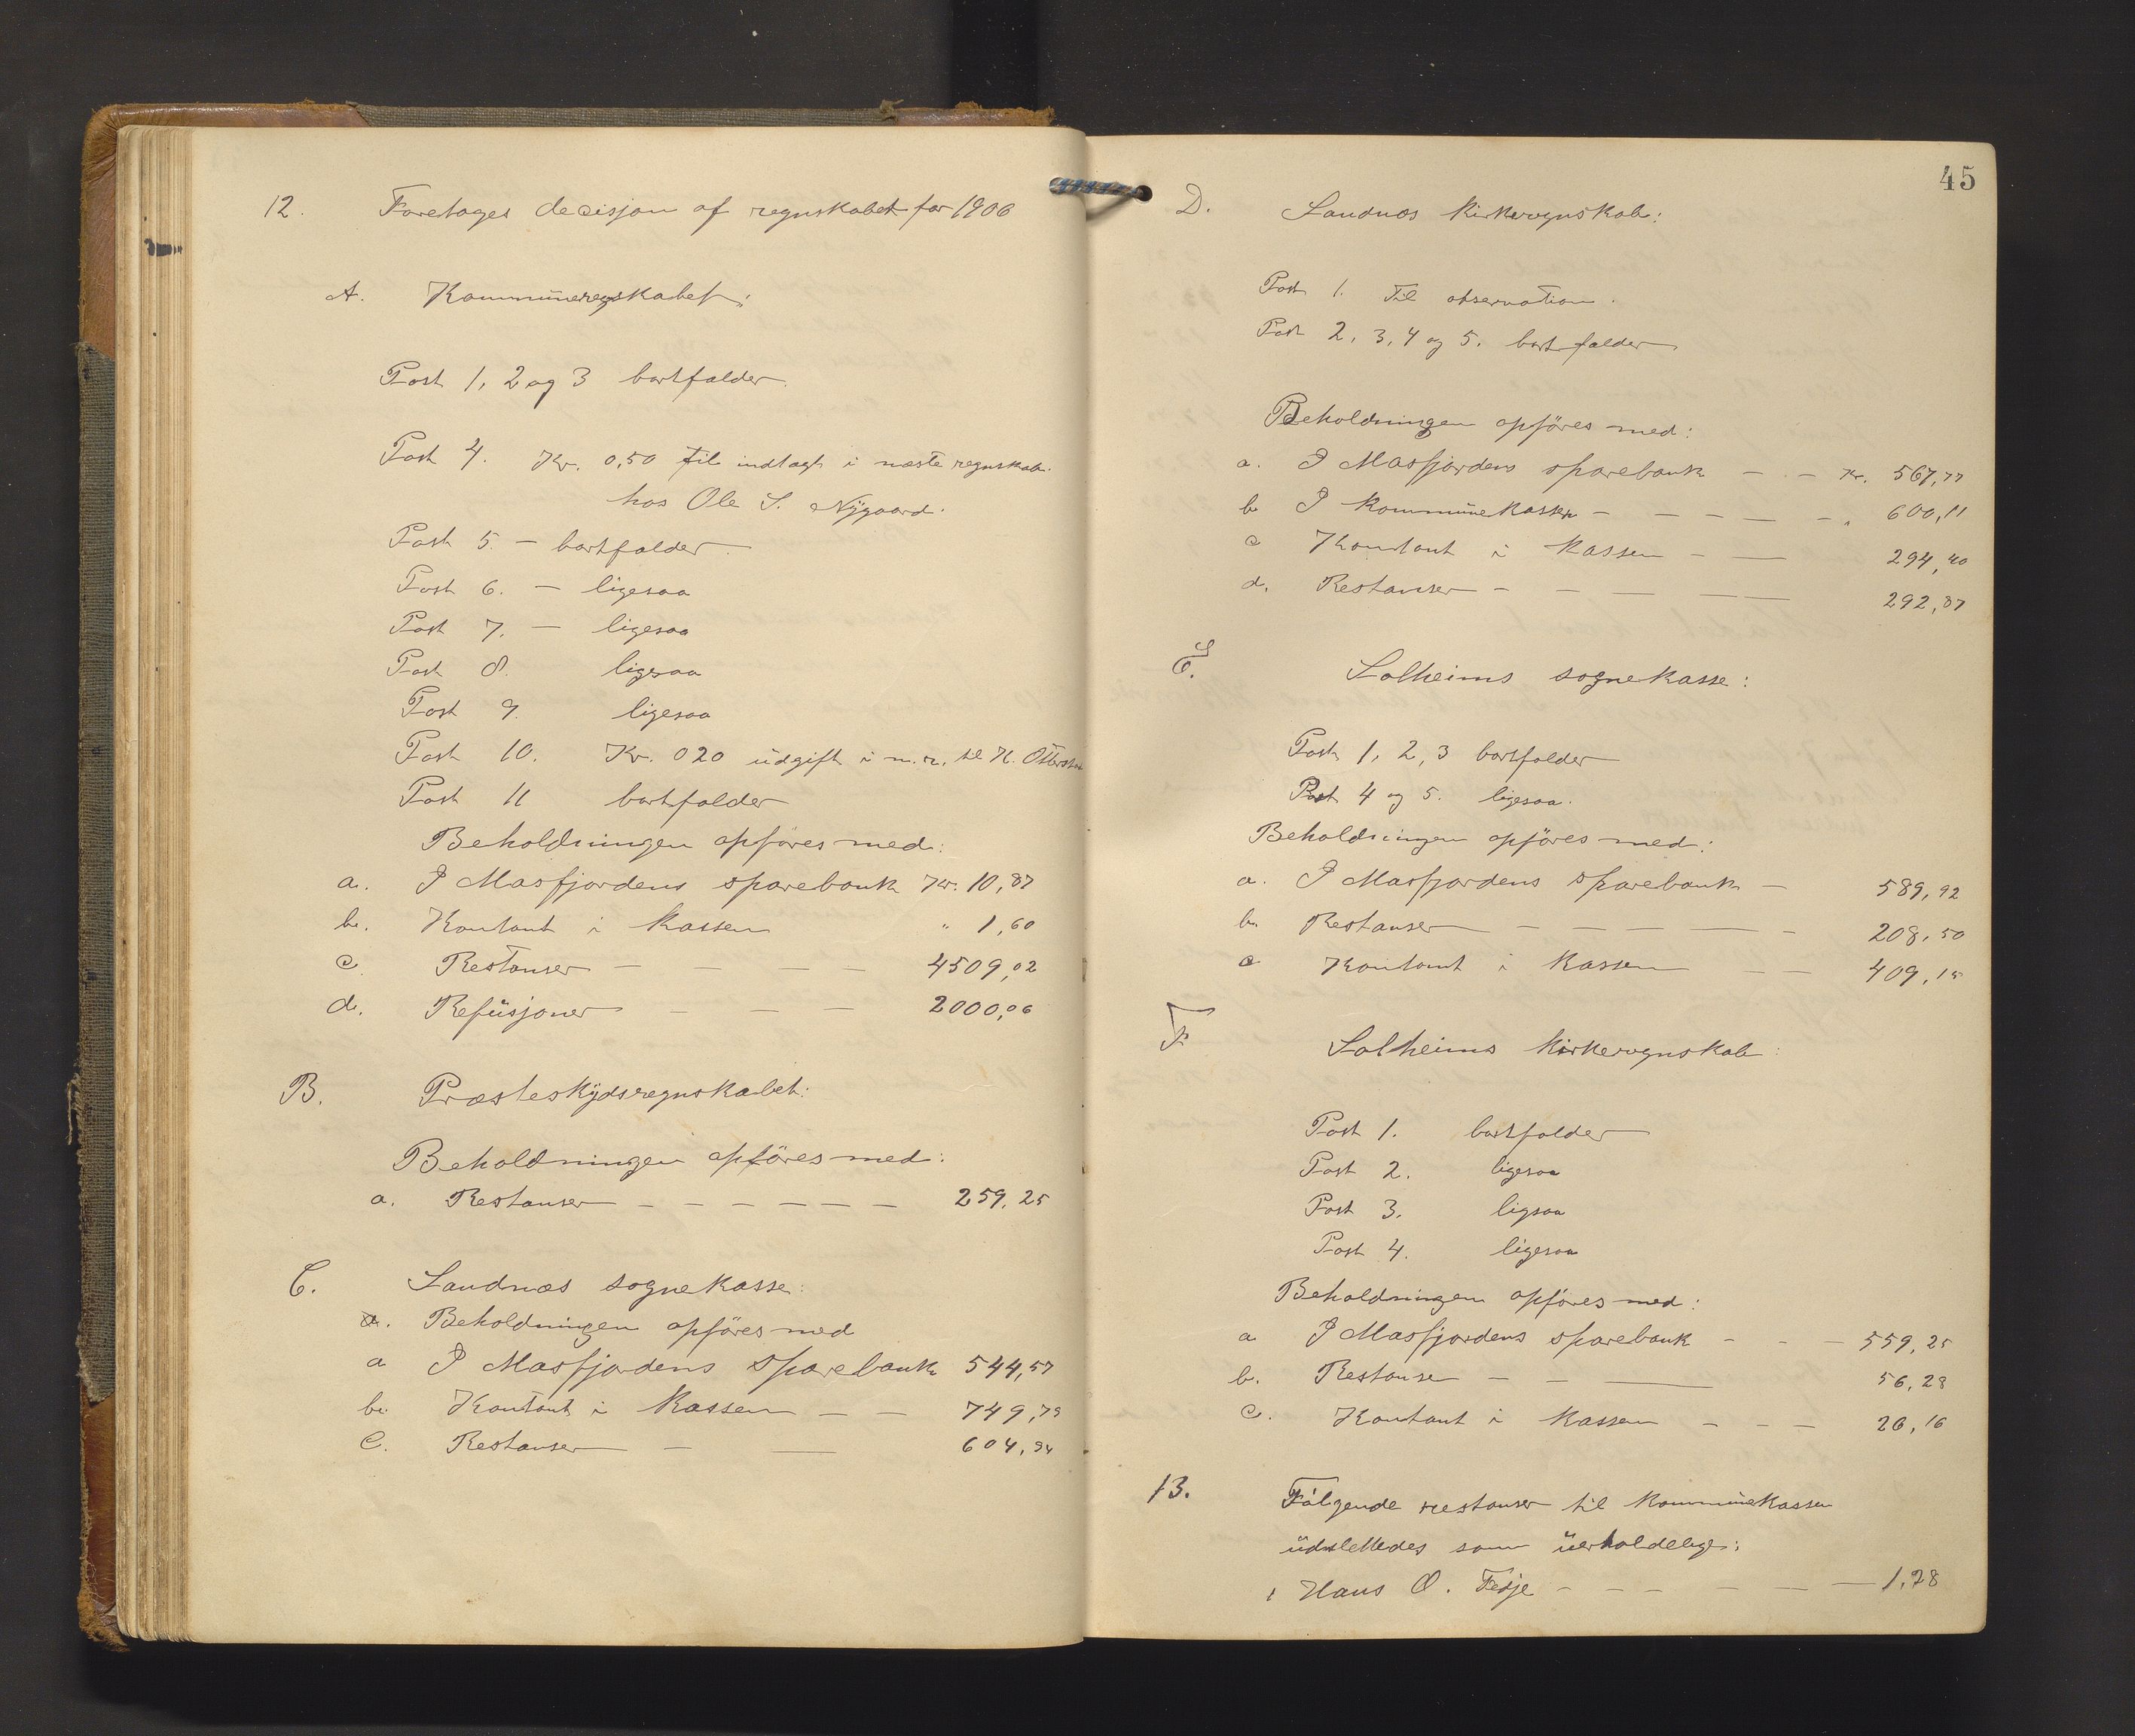 12. Foretages decisjon af regnskabet for 1906
A. Kommuneregskabet:
Post 1, 2 og 3 bortfalder.
Post 4. Kr. 0,50 til indtægt i næste regnskab.
hos Ole S. Nygaard.
Post 5. – bortfalder.
Post 6. – ligesaa
Post 7. – ligesaa
Post 8. ligesaa
Post 9. ligesaa
Post 10. Kr. 020 udgift i n. r. til H.
Post 11 bortfalder
Beholdningen opföres med:
a. I Masfjordens sparebank Kr. 10,87
b. Kontant i kassen " 1,60
c Restanser – – – – 4509,02
d. Refusjoner – – – 2000,06
B. Præsteskydsregnskabet:
Beholdningen opföres med:
a. Restanser – – – – – – 259,25
C. Sandnæs sognekasse:
a. Beholdningen opföres med
a I Masfjordens sparebank 544,57
b. Kontant i kassen – – 749,79
c. Restanser – — 604,94
45
D. Sandnæs kirkeregnskab:
Post 1. Til observation.
Post 2, 3, 4 og 5. bortfalder
Beholdningen opföres med:
a. I Masfjordens sparebank – – Kr. 567,77
b I kommunekassen – – – – – " 600,11
c Kontant i kassen – — 294,40
d. Restanser – – — — 292,87
E. Solheims sognekasse:
Post 1, 2, 3 bortfalder
Post 4 og 5. ligesaa.
Beholdningen opföres med:
a. I Masfjordens sparebank – 589,92
b. Restanser – – – — – 208,50
c Kontant i kassen – – 409,15
F Solheims kirkeregnskab:
Post 1. bortfalder
Post 2. ligesaa
Post 3. ligsaa
Post 4. ligesaa
Beholdningen opföres med:
a I Masfjordens sparebank – – – 559,25
b. Restanse – – — 56,28
c. Kontant i kassen – – – 26,16
13. Fölgende restanser til kommunekassen
udslettedes som uerholdelige:
1 Hans O. Fedje – – – – – — 1,28